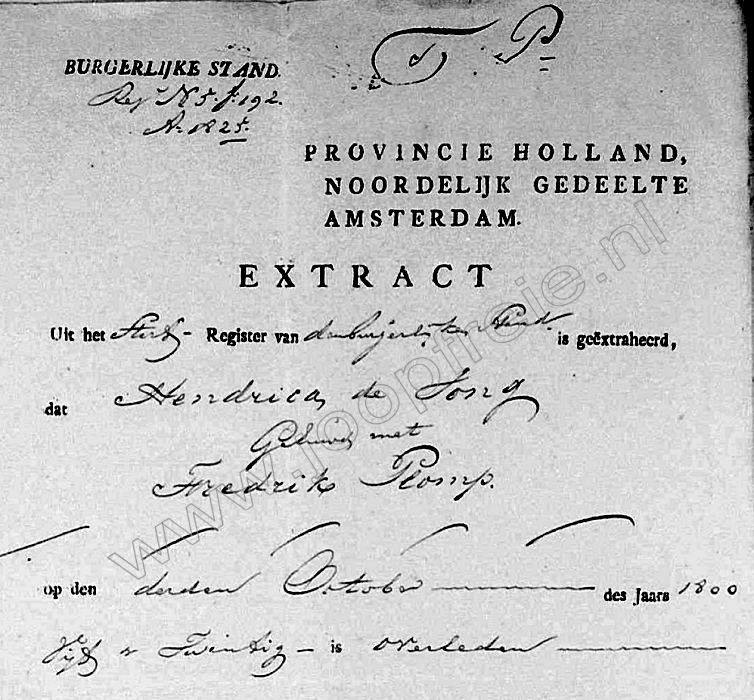 T. P.
BURGERLIJKE STAND.
Reg. N 5. f. 192.
A. 1825.
PROVINCIE HOLLAND,
NOORDELIJK GEDEELTE
AMSTERDAM.
EXTRACT
Uit het Sterf- Register van den burgerlijken Stand is geëxtraheerd,
dat Hendrica de Jong
Gehuwd met
Fredrik Plomp.
op den derden October des Jaars 1800
Vijf & Twintig - is overleden
www.joopfreie.nl